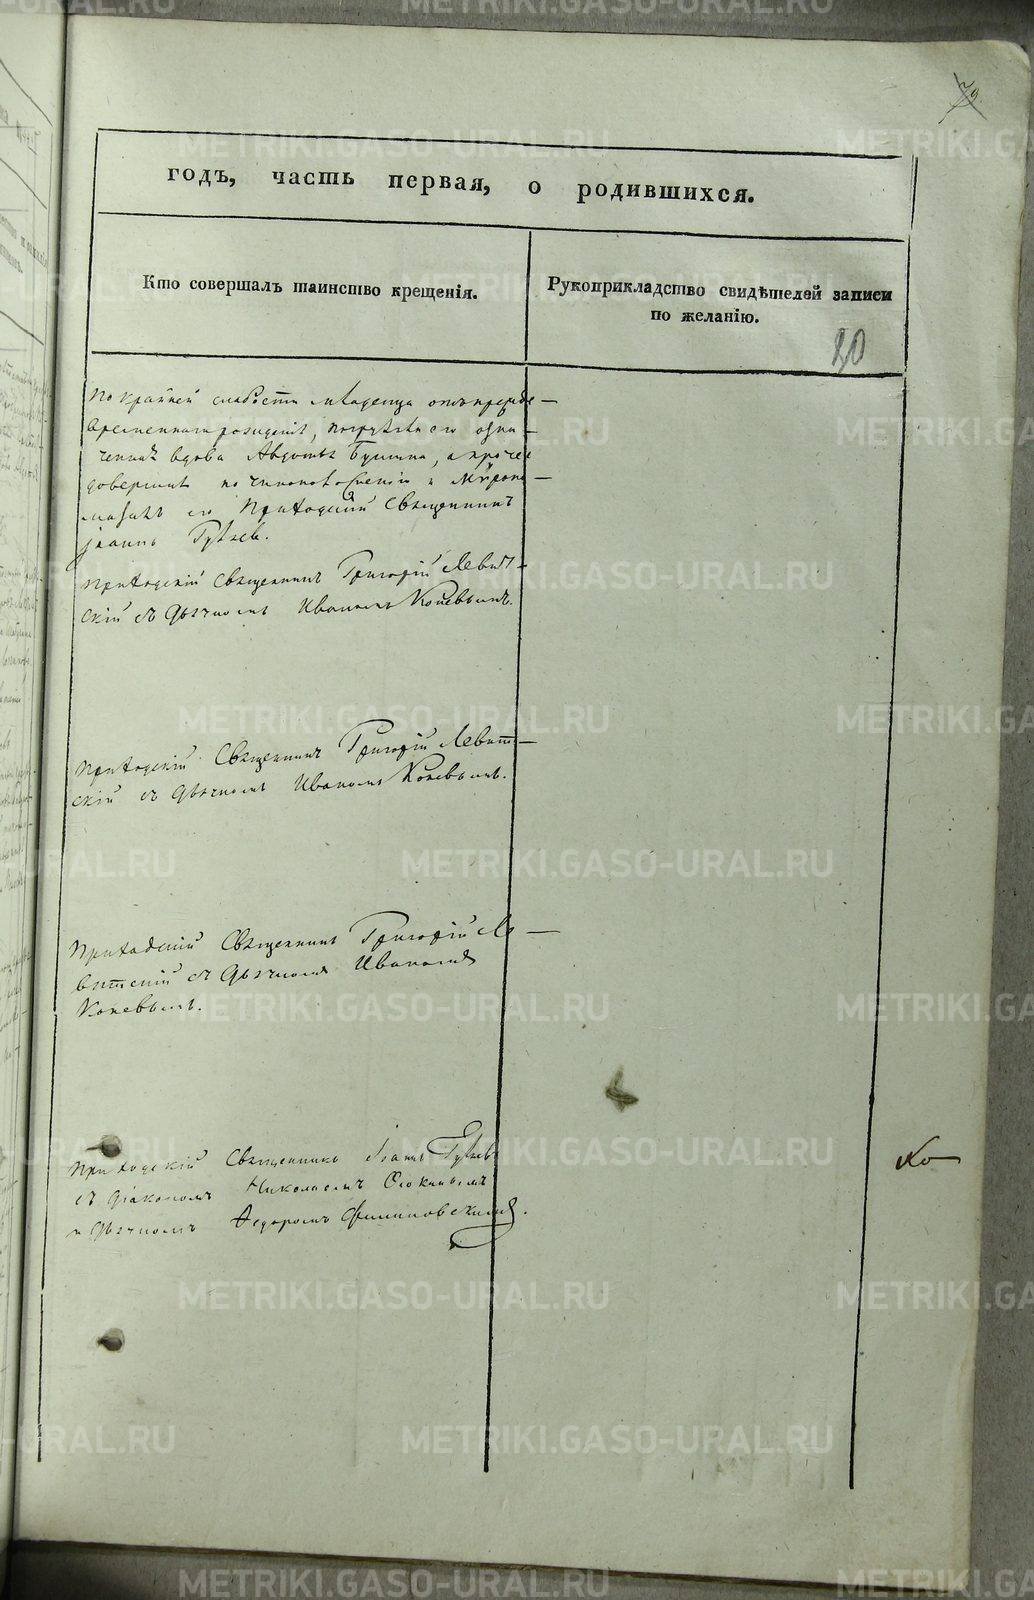 79.
годъ, часть первая, о родившихся.
Кто совершалъ таинство крещенія.
Рукоприкладство свидѣтелей записи
по желанію.
20
По крайней слабости младенца отъ прежде-
временнаго рожденія, погрузила его
вдова Авдотья, а прочее
довершилъ по чиноположенію и Мѵропо-
мазалъ его Приходскій Священникъ
Іоаннъ
Приходскій Священникъ Григорій Левит-
скій съ Дьячкомъ Иваномъ Коневымъ.
Приходскій Священникъ Григорій Левит-
скій съ Дьячкомъ Иваномъ Коневымъ.
Приходскій Священникъ Григорій Ле-
витскій съ Дьячкомъ Иваномъ
Коневымъ.
Приходскій Священникъ Іоаннъ
съ Діакономъ Николаемъ
и Дьячкомъ Ѳедоромъ Филиповскимъ.
METRIKI.GASO-URAL.RU